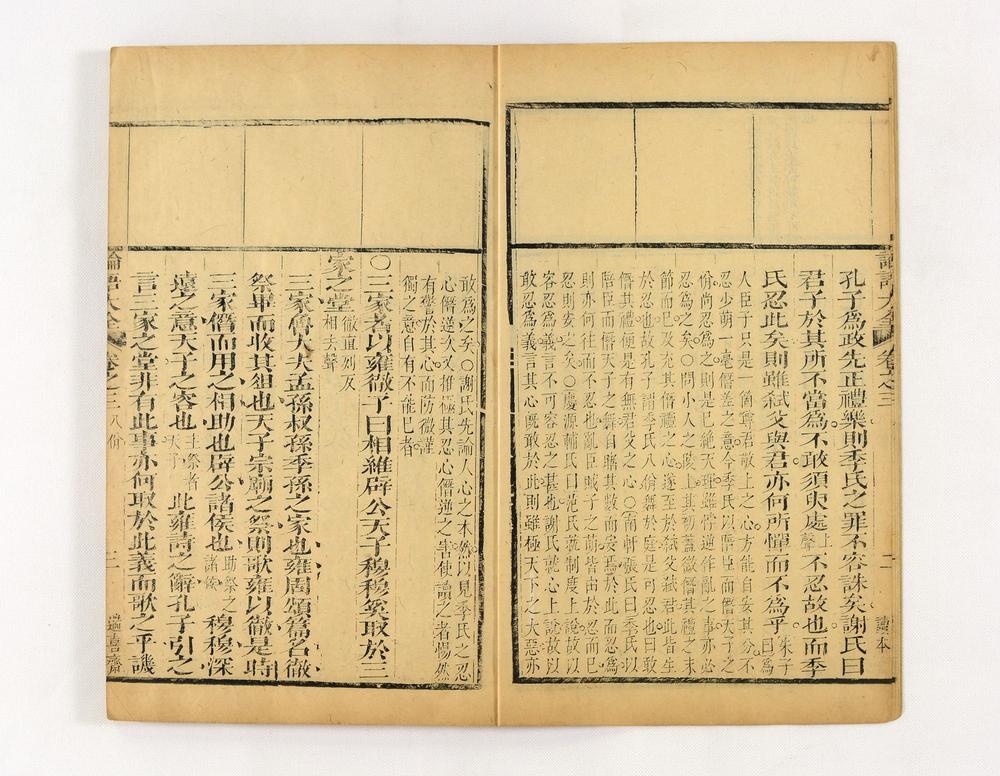 孔子為政先正禮樂則季氏之罪不容誅矣謝氏曰
君子於其所不當為不敢須臾處上聲不忍故也而季
氏忍此矣則雖弒父與君亦何所憚而不為乎朱子曰為
人臣子只是一箇尊君敬上之心方能自安其分不
忍少萌一毫僭差之意今季氏以陪臣而僭天子之
佾尚忍為之則是已絶天理雖悖逆作亂之事亦必
忍為之矣○問小人之陵上其初蓋微僭其禮之末
節而已及充其僭禮之心遂至於弒父弒君此皆生
於忍也故孔子謂季氏八佾舞於庭是可忍也曰敢
僭其禮便是有無君父之心○南軒張氏曰季氏以
陪臣而僭天子之舞自睹其數而安焉於此而忍為
則亦何往而不忍也亂臣賊子之萌皆由於忍而已
忍則安之矣○慶源輔氏曰范氏就制度上說故以
容忍為義言不可容忍之甚也謝氏就心上說故以
敢忍為義言其心既敢於此則雖極天下之大惡亦
論語大全 卷之三 二 讀本
敢為之矣○謝氏先論人心之本然以見季氏之忍
心僭逆次又推極其忍心僭逆之害使讀之者惕然
有警於其心而防微謹
獨之意自有不能已者
○三家者以雍徹子曰相維辟公天子穆穆奚取於三
家之堂徹直列反相去聲
三家魯大夫孟孫叔孫季孫之家也雍周頌篇名徹
祭畢而收其俎也天子宗廟之祭則歌雍以徹是時
三家僭而用之相助也辟公諸侯也助祭之諸侯穆穆深
遠之意天子之容也主祭者天子此雍詩之辭孔子引之
言三家之堂非有此事亦何取於此義而歌之乎譏
論語大全 卷之三 八佾 二 遺喜齋